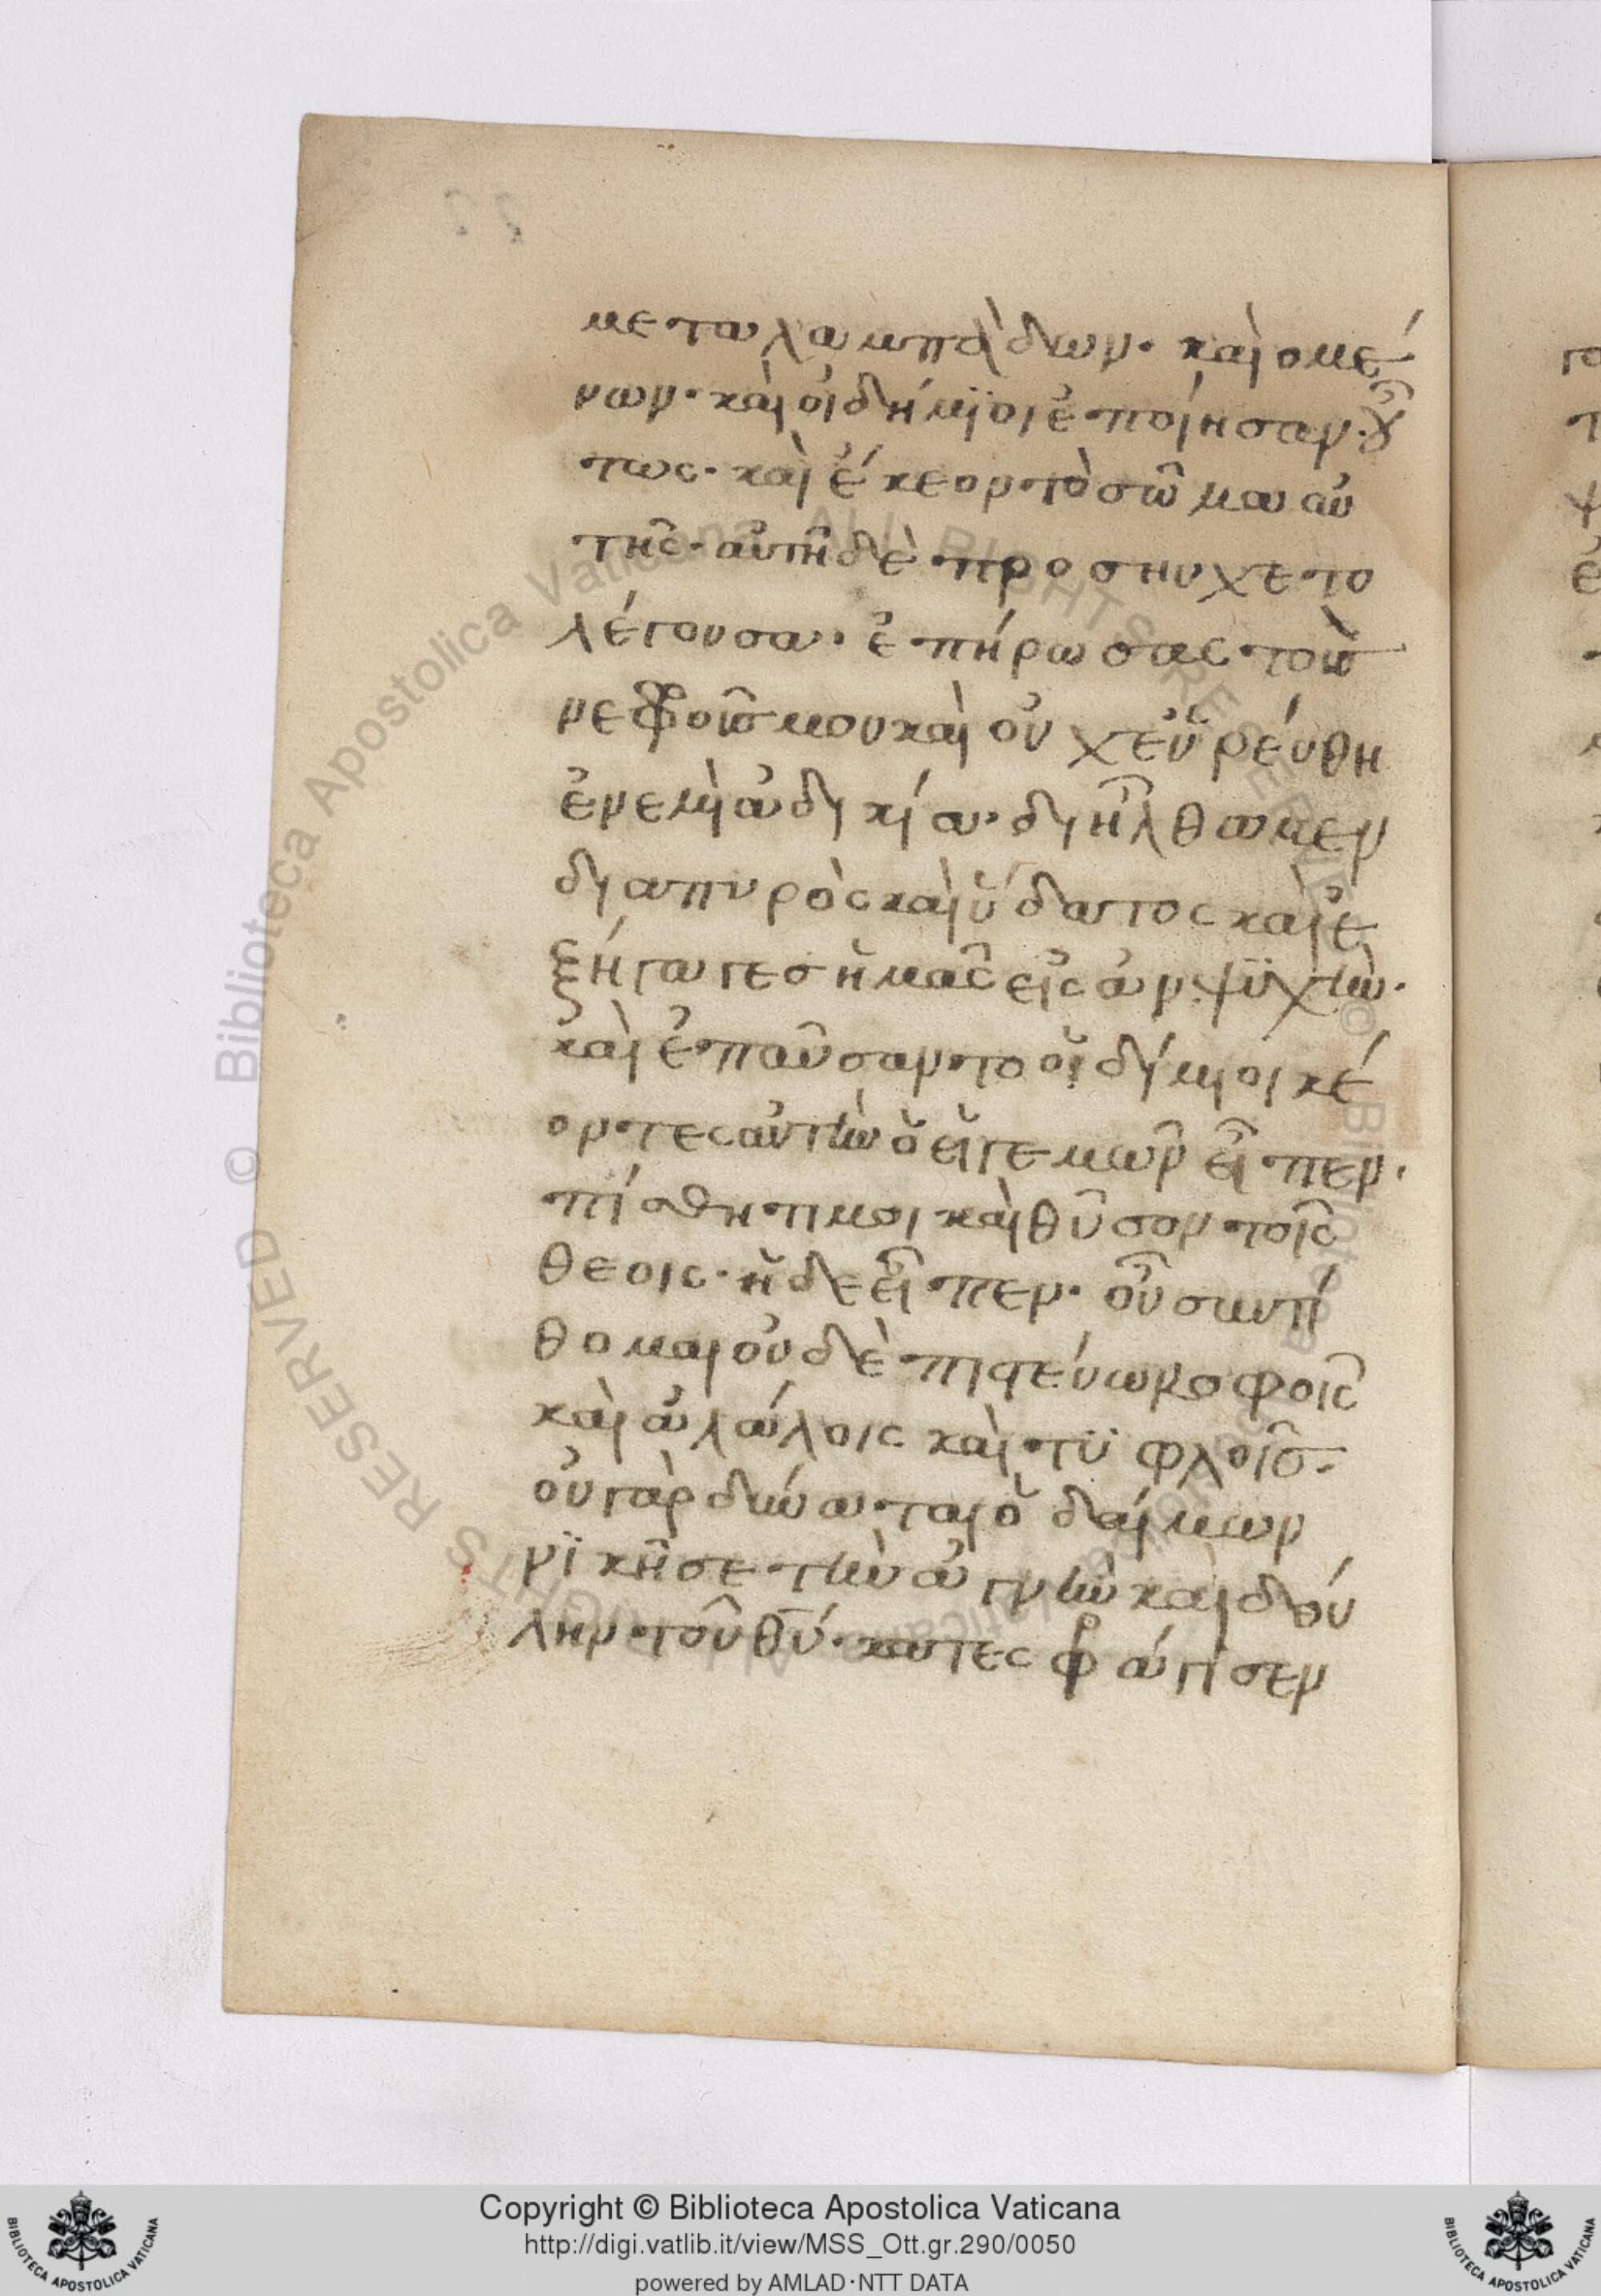 μεταλαμπάδων· καὶ ομέ
νων· καὶ οἱ δήμϊοι ἐποίησαν· οὕ
τως· καὶ ἔκεον τὸ σῶμα αὐ
τῆς· αὐτὴ δὲ προσηυχετο
λέγουσα· ἐπήρωσας τοὺς
νεφροῦς μου καὶ οὐχ εὑρέυθη
ἐνεμὶ ἀδικία· διῆλθαμεν
διαπυρὸς καὶ ὕδατος καὶ ἐ
ξήγαγες ἡμᾶς εἰς ἀνψϋχὴν·
καὶ ἐπαῦσαντο οἱ δίμιοι κέ
οντες αὐτὴν ὁ εἱγεμὼν εἶπεν·
πίσθητι μοι καὶ θῦσον τοῖς
θεοις· ἡ δε εἶπεν· οὐ σιντί
θομαι οὐδὲ πιστεύω κοφοῖς
καὶ ἀλάλοις καὶ τϋφλοῖς·
οὐ γὰρ δύναται ὁ δαίμων
νϊκῆσε τὴν ἁγνὴν καὶ δού
λην τοῦ θῦ· κατεσφάγισεν
Copyright © Biblioteca Apostolica Vaticana
http://digi.vatlib.it/view/MSS_Ott.gr.290/0050
powered by AMLAD·NTT DATA